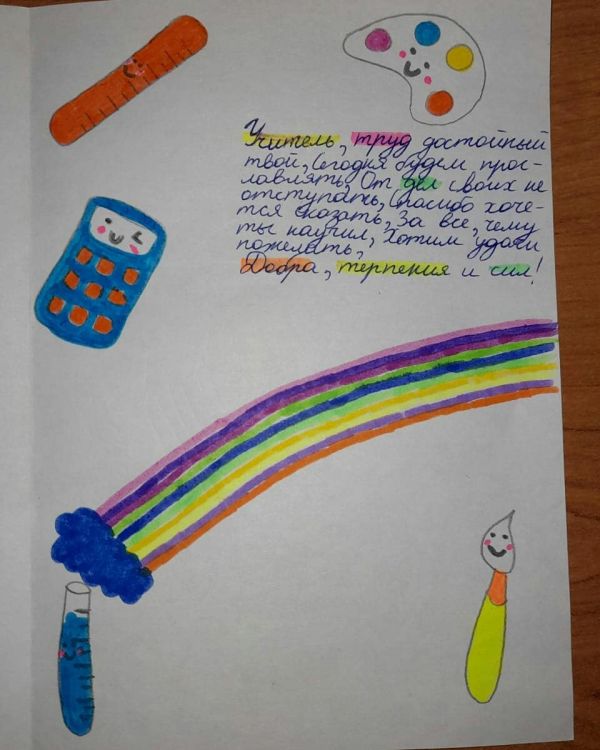 Учитель, труд достойный
твой, Сегодня будем прос-
лавлять, От дел своих не
отступать, Спасибо хоче-
тся сказать, За все, чему
ты научил, Хотим удачи
пожелать,
Добра, терпения и сил!